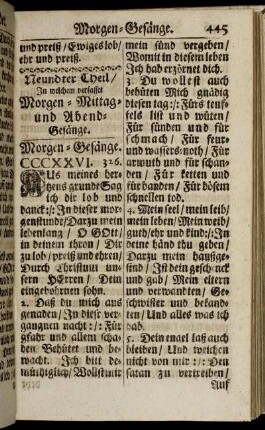 Morgen-Gesänge. 445
und preiß/Ewiges lob/
ehr und preiß.
Neundter Theil/
In welchem verfasset
Morgen-Mittag-
und Abend-
Gesänge.
Morgen-Gesänge.
CCCXXVI. 326.
AUs meines her-
tzens grunde Sag
ich dir lob und
danck:/: In dieser mor-
genstunde/Darzu mein
lebenlang/ O GOtt/
in deinem thron/ Dir
zu lob/preiß und ehren/
Durch Christum un-
sern HErren/ Dein
eingebohrnen sohn.
2. Daß du mich aus
genaden/ In dieser ver-
gangnen nacht:/: Für
gfahr und allem scha-
den Behütet und be-
wacht. Ich bitt de-
müthiglich/ Wollst mir
mein sünd vergeben/
Womit in diesem leben
Ich hab erzörnet dich.
3. Du wollest auch
behüten Mich gnädig
diesen tag:/: Fürs teuf-
fels list und wüten/
Für sünden und für
schmach/ Für feur-
und wassers-noth/ Für
armuth und für schan-
den/ Für ketten und
für banden/ Für bösem
schnellen tod.
4. Mein seel/mein leib/
mein leben/Mein weib/
guth/ehr und kind:/:In
deine händ thu geben/
Darzu mein haußge-
sind/Ist dein geschenck
und gab/ Mein eltern
und verwandten/ Ge-
schwister und bekand-
ten/ Und alles was ich
hab.
5. Dein engel laß auch
bleiben/ Und weichen
nicht von mir:/: Den
satan zu vertreiben/
Auf